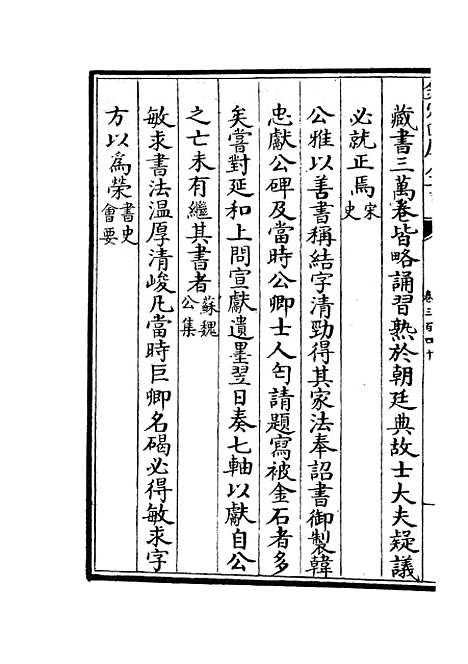 卷三百四十
藏書三萬卷皆略誦習熟於朝廷典故士大夫疑議
必就正焉宋史
公雅以善書稱結字清勁得其家法奉詔書御製韓
忠獻公碑及當時公卿士人匄請題寫被金石者多
矣嘗對延和上問宣獻遺墨翌日奏七軸以獻自公
之亡未有繼其書者蘇魏公集
敏求書法温厚清峻凡當時巨卿名碣必得敏求字
方以為榮書史會要